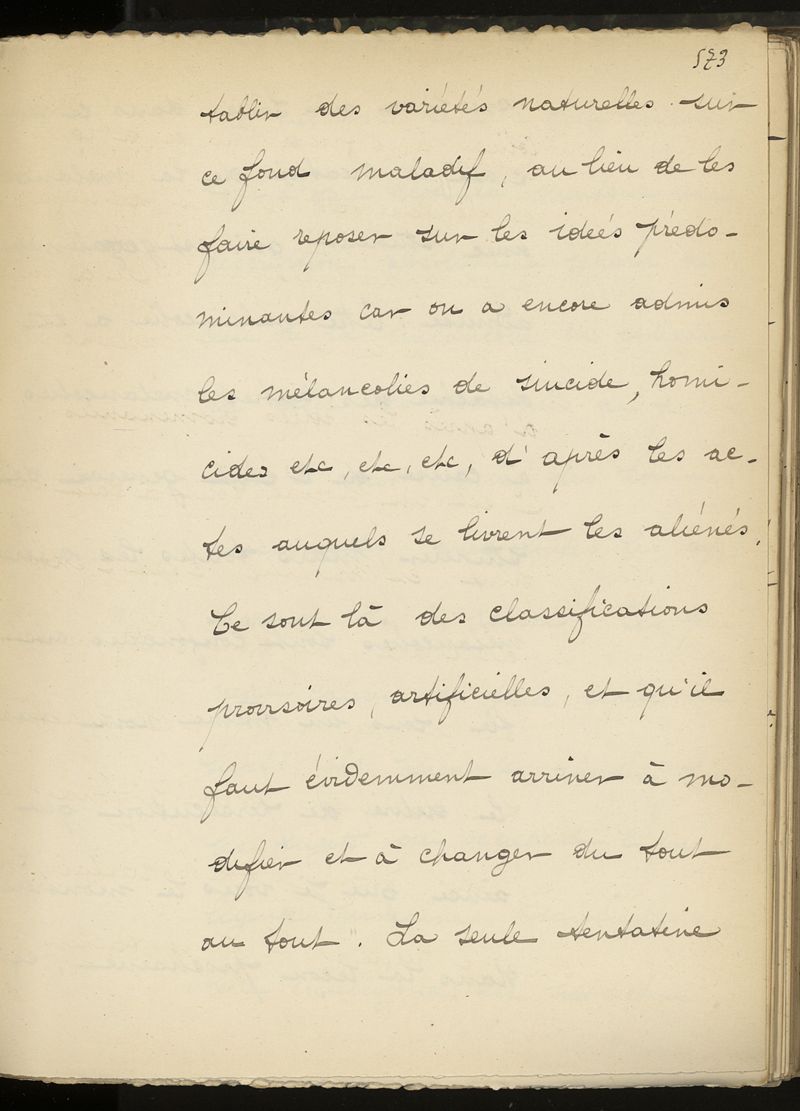 573
tablir des variétés naturelles sur
ce fond maladif, au lieu de les
faire reposer sur les ideés prédo-
minantes car on a encore admis
les mélancolies de suicide, homi-
cides etc, etc, etc, d'après les ac-
tes auquels se livrent les aliénés.
Ce sont là des classifications
provisoires, artificielles, et qu'il
faut évidemment arriver à mo-
difier et à changer du tout
au tout". La seule tentative